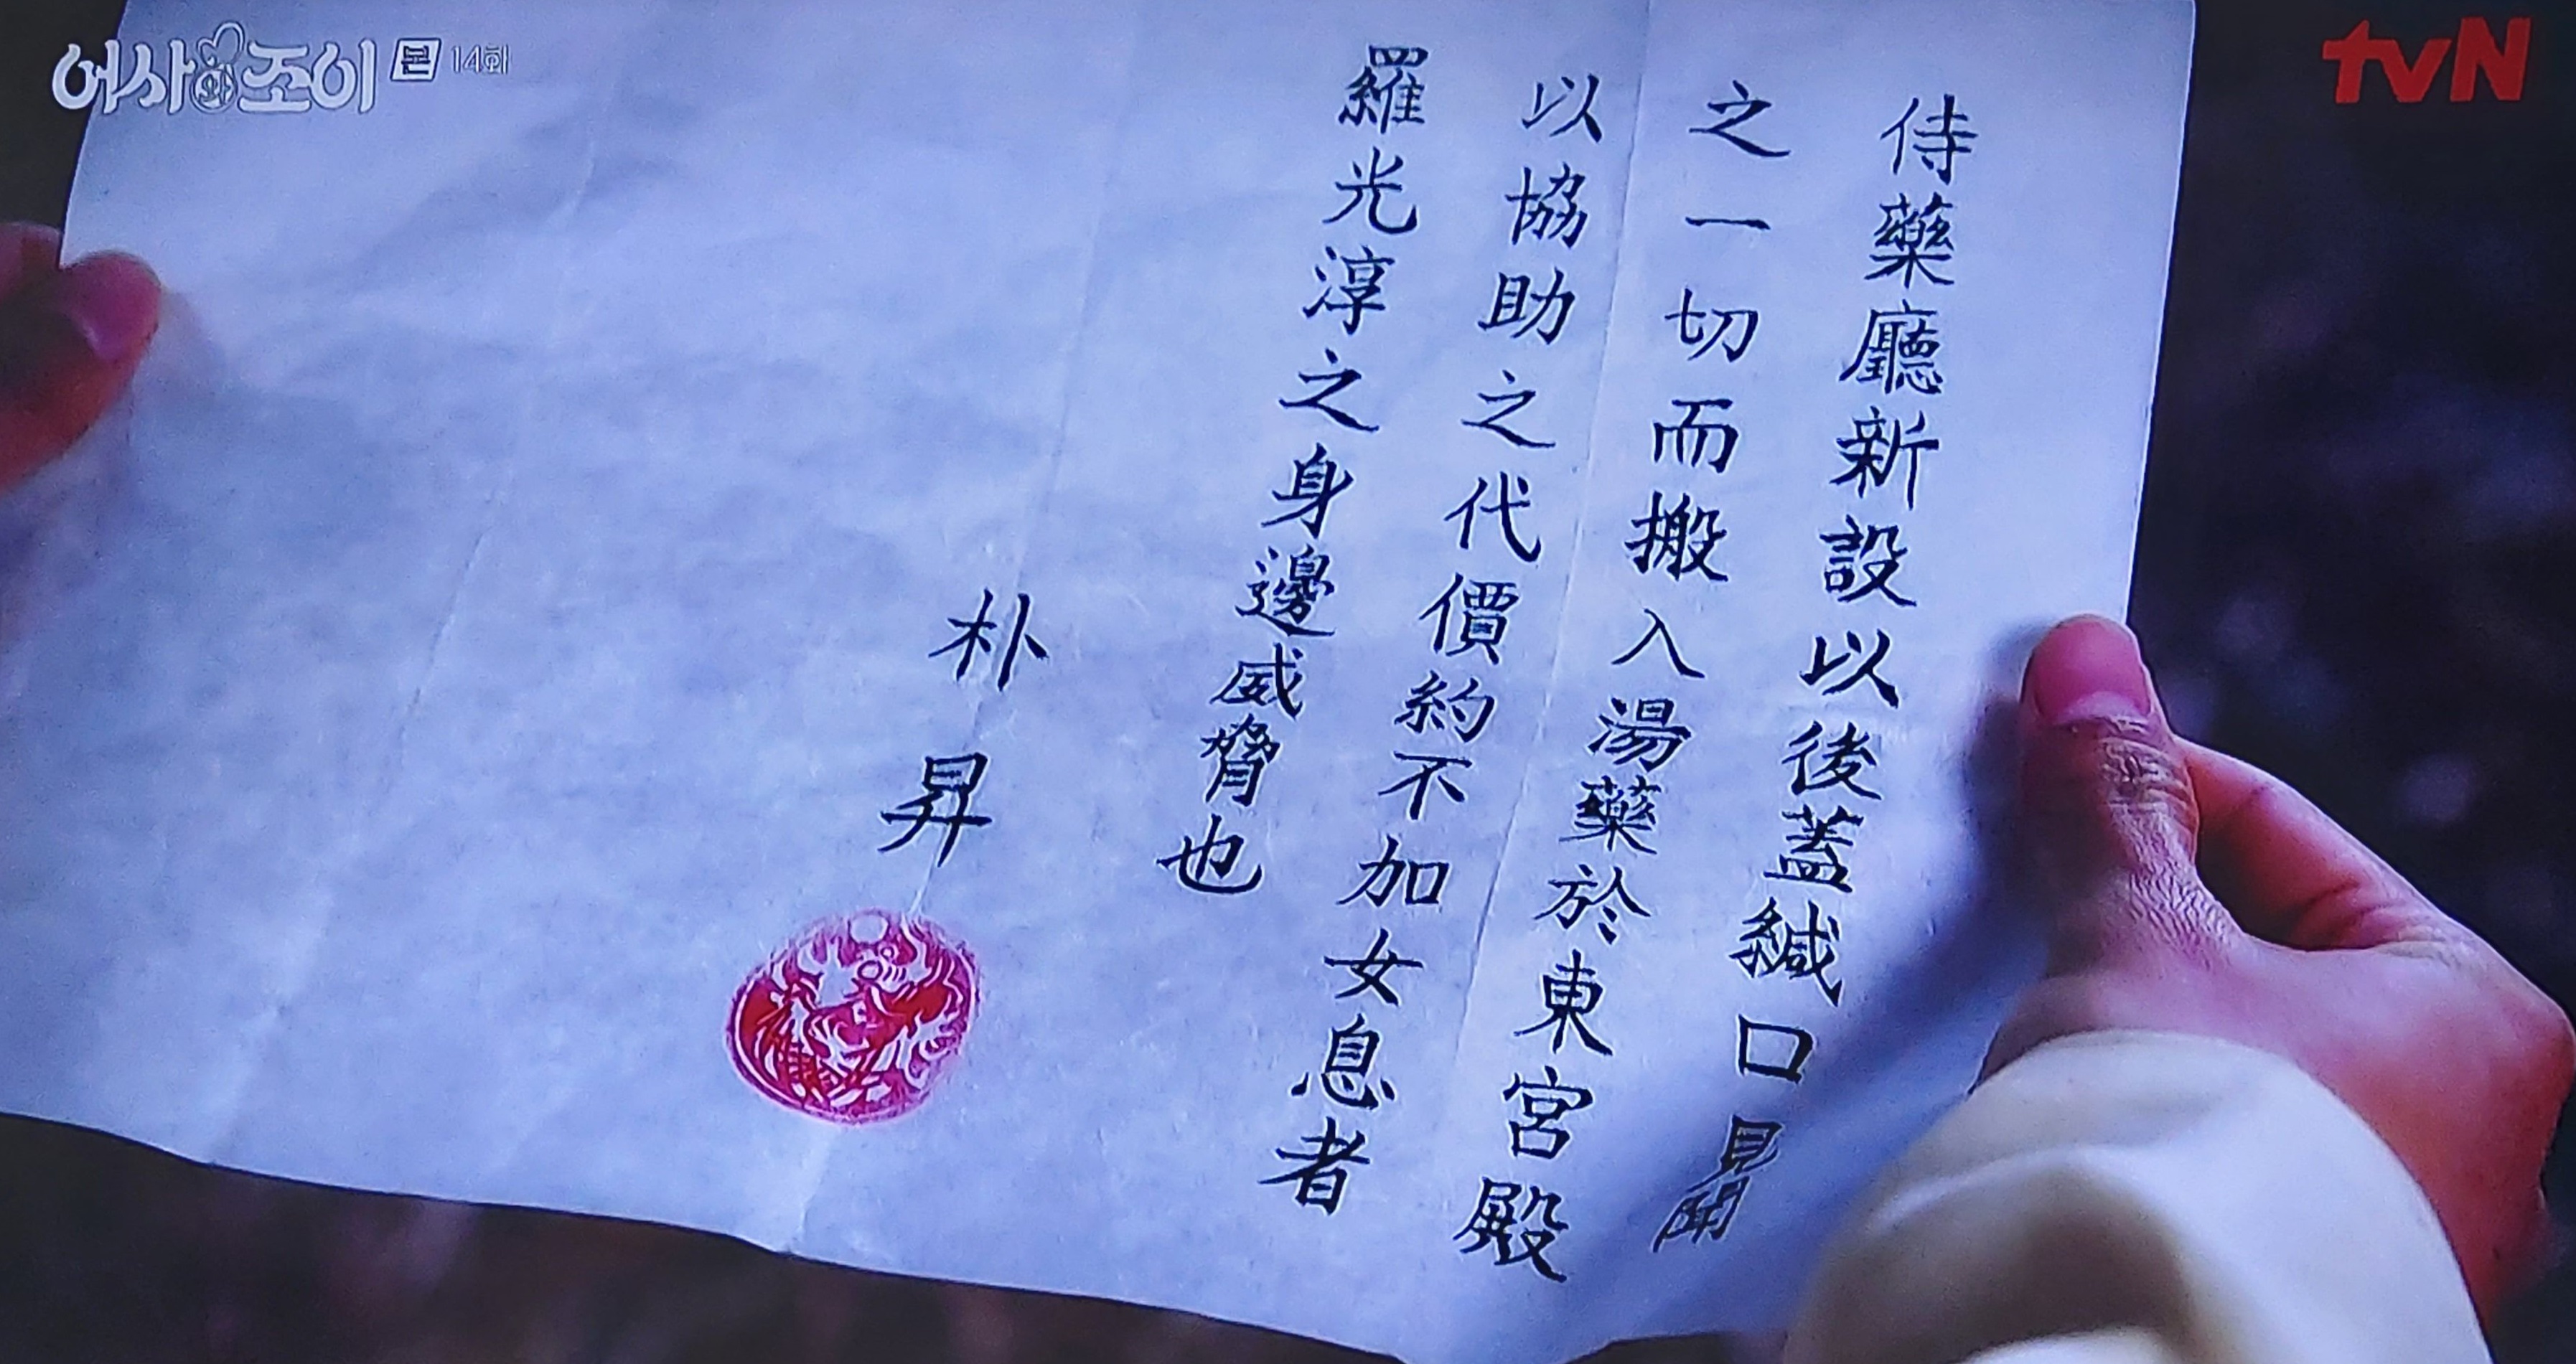 어사와조이 본 14회
tvN
侍藥廳新設以後蓋緘口見聞
之一切而搬入湯藥於東宮殿
以協助之代價約不加女息者
羅光淳之身邊威脅也
朴昇